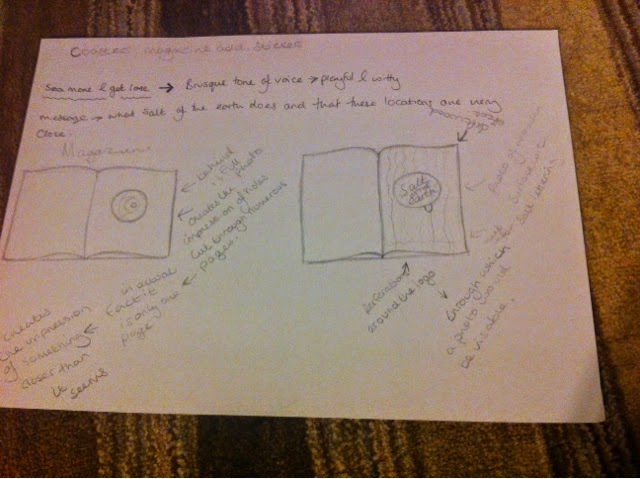 Coaster magazine add, sticker
Sea more & get lose → Brusque tone of voice → playful & witty
message → what salt of the earth does and that these locations are very
close.
Magazine
behind
is full
photo
creates the
impression of holes
cut through numerous
pages.
in actual
fact it
is only one
page
creates
the impression
of something
closer than
it seems
Salt
of the
earth
perforations
around the logo
through which
a photo would
be visible.
photo of
Salt lettering